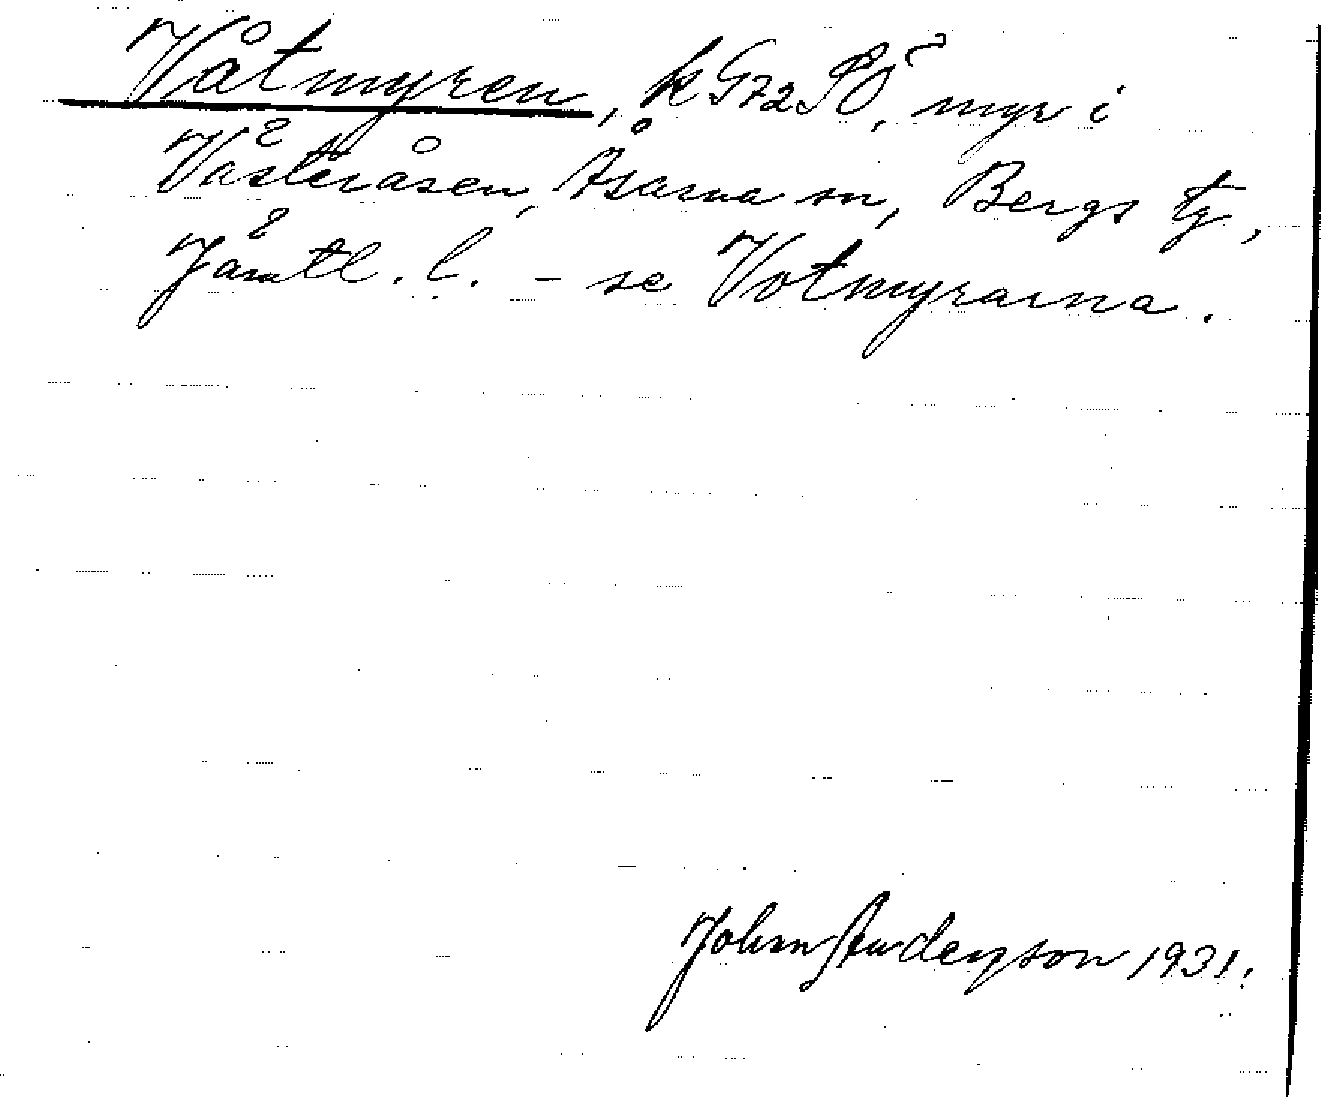 Våtmyren, k G72SÖ, myr i
Västeråsen, Åsarna sn, Bergs tg,
Jämtl. l. - se Votmyrarna.
John Anderson 1931.